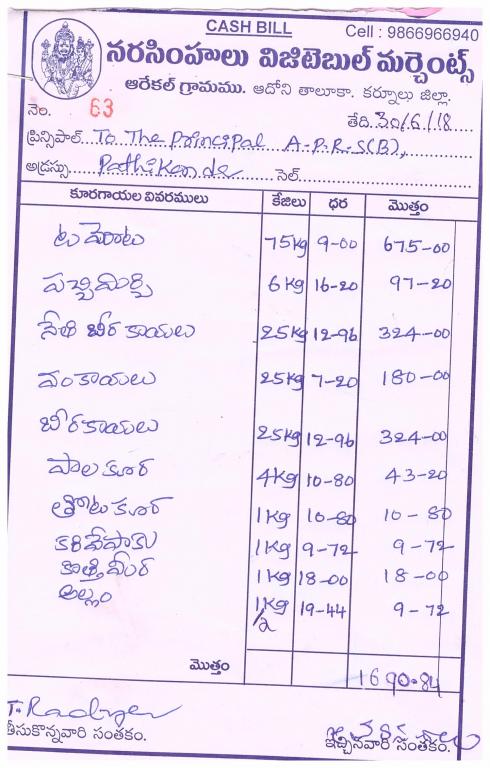 CASH BILL
Cell : 9866966940
నరసింహులు విజిటెబుల్ మర్చెంట్స్
ఆరేకల్ గ్రామము. ఆదోని తాలూకా. కర్నూలు జిల్లా.
నెం. 63 తేది. 30/6/18
ప్రిన్సిపాల్ To The Principal A.P.R.S(B),
అడ్రస్సు Pathikonda సెల్.
కూరగాయల వివరములు కేజీలు ధర మొత్తం
టమోటు 75Kg 9-00 675-00
పచ్చిమిర్చి 6Kg 16-20 97-20
నేతి బీర కాయలు 25Kg 12-96 324-00
వంకాయలు 25Kg 7-20 180-00
బీరకాయలు 25Kg 12-96 324-00
పాలకూర 4Kg 10-80 43-20
తోటకూర 1Kg 10-80 10-80
కరివేపాకు 1Kg 9-72 9-72
కొత్తిమీర 1Kg 18-00 18-00
అల్లం 1/2Kg 19-44 9-72
మొత్తం 1690.84
తీసుకొన్నవారి సంతకం. ఇచ్చినవారి సంతకం.